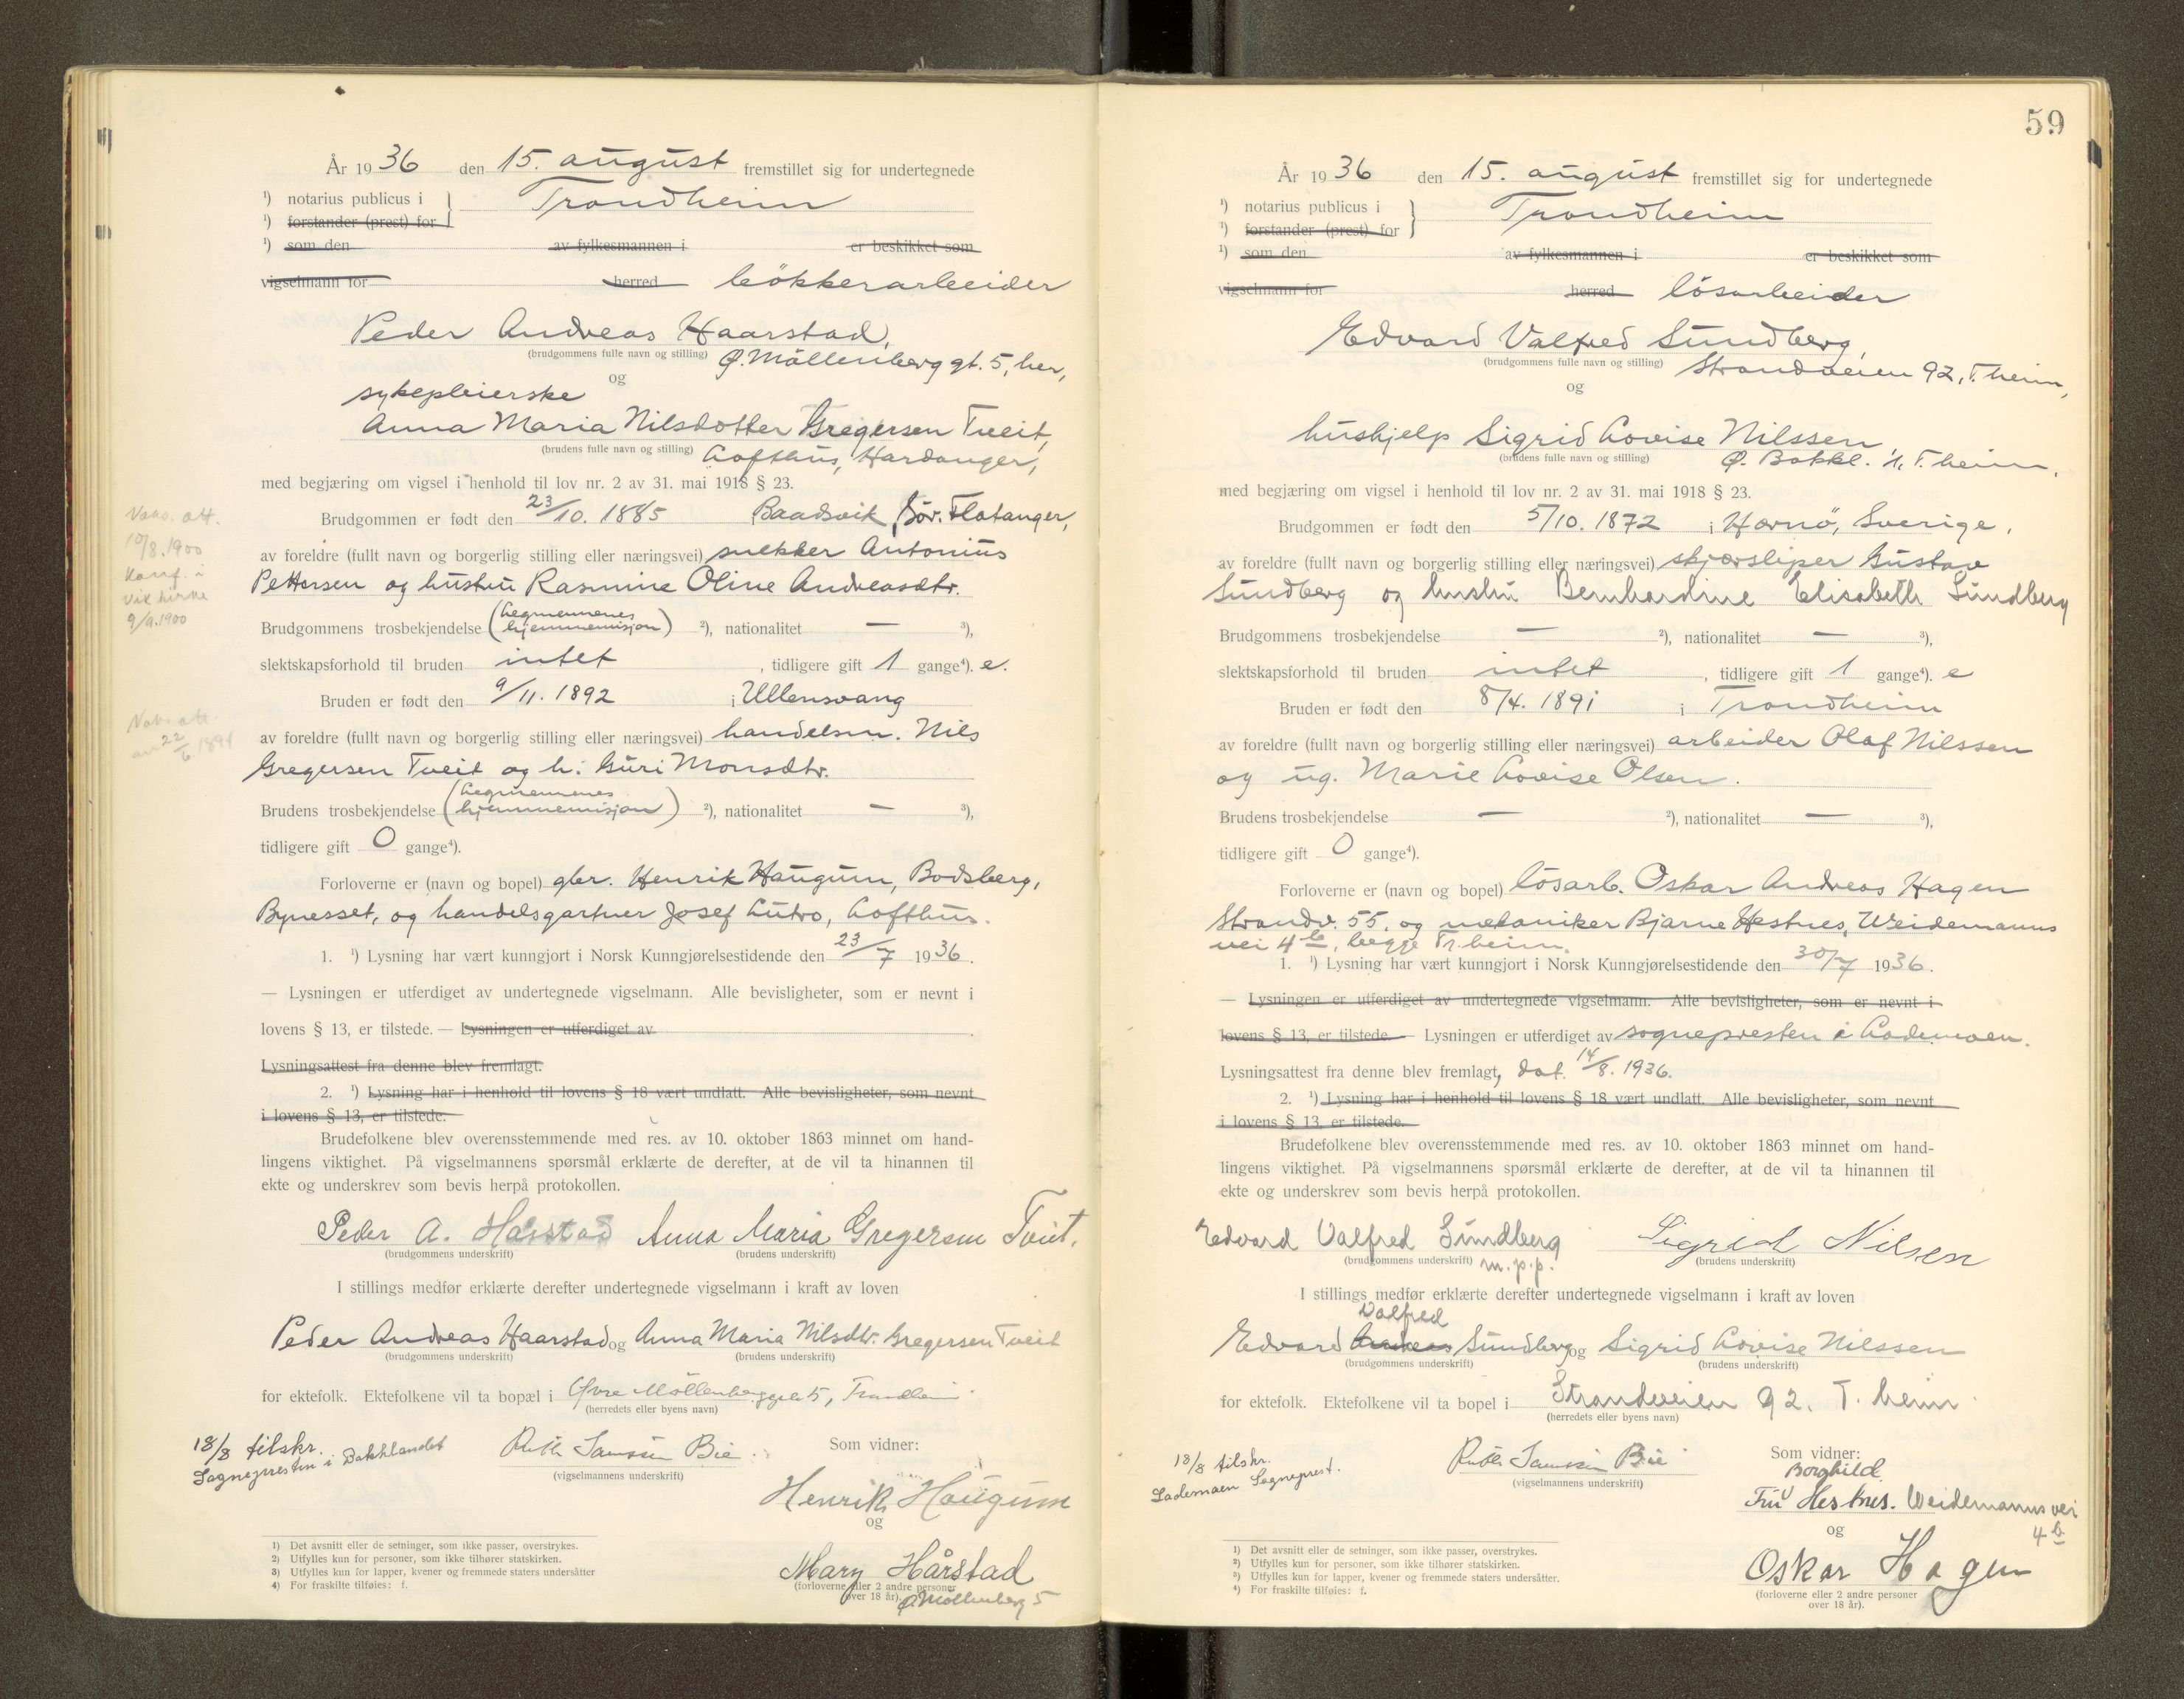 År 1936 den 15. august fremstillet sig for undertegnede
¹) notarius publicus i } Trondheim
¹) forstander (prest) for
¹) som den av fylkesmannen i er beskikket som
vigselmann for herred bökkerarbeider
Peder Andreas Haarstad,
(brudgommens fulle navn og stilling) Ø. Möllenberg gt. 5, her,
og
sykepleierske
Anna Maria Nilsdotter Gregersen Tveit,
(brudens fulle navn og stilling) Lofthus, Hardanger,
med begjæring om vigsel i henhold til lov nr. 2 av 31. mai 1918 § 23.
Brudgommen er født den 23/10. 1885 Baadsvik, Sör. Flatanger,
av foreldre (fullt navn og borgerlig stilling eller næringsvei) snekker Antonius
Pettersen og hustru Rasmine Oline Andreasdtr.
Brudgommens trosbekjendelse (Legmennenes hjemmemisjon) ²), nationalitet — ³),
slektskapsforhold til bruden intet, tidligere gift 1 gange⁴). e.
Bruden er født den 9/11. 1892 i Ullensvang
av foreldre (fullt navn og borgerlig stilling eller næringsvei) handelsm. Nils
Gregersen Tveit og h. Guri Monsdtr.
Brudens trosbekjendelse (Legmennenes hjemmemisjon) ²), nationalitet — ³),
tidligere gift 0 gange⁴).
Forloverne er (navn og bopel) gbr. Henrik Haugum, Bodsberg,
Bynesset, og handelsgartner Josef Lutro, Lofthus.
1. ¹) Lysning har vært kunngjort i Norsk Kunngjørelsestidende den 23/7 1936.
— Lysningen er utferdiget av undertegnede vigselmann. Alle bevisligheter, som er nevnt i
lovens § 13, er tilstede. — Lysningen er utferdiget av
Lysningsattest fra denne blev fremlagt.
2. ¹) Lysning har i henhold til lovens § 18 vært undlatt. Alle bevisligheter, som nevnt
i lovens § 13, er tilstede.
Brudefolkene blev overensstemmende med res. av 10. oktober 1863 minnet om hand-
lingens viktighet. På vigselmannens spørsmål erklærte de derefter, at de vil ta hinannen til
ekte og underskrev som bevis herpå protokollen.
Peder A. Haarstad Anna Maria Gregersen Tveit.
(brudgommens underskrift) (brudens underskrift)
I stillings medfør erklærte derefter undertegnede vigselmann i kraft av loven
Peder Andreas Haarstad og Anna Maria Nilsdtr. Gregersen Tveit
(brudgommens underskrift) (brudens underskrift)
for ektefolk. Ektefolkene vil ta bopæl i Øvre Möllenberggate 5, Trondheim.
(herredets eller byens navn)
Som vidner:
(vigselmannens underskrift)
Henrik Haugum
og
Mary Hårstad
(forloverne eller 2 andre personer
over 18 år). Ø. Möllenberg 5
18/8 tilskr.
Sognepresten i Bakklandet
Vaks. att.
10/8.1900
Konf. i
Vik kirke
9/9.1900
Vaks. att.
av 22/6
1) Det avsnitt eller de setninger, som ikke passer, overstrykes.
2) Utfylles kun for personer, som ikke tilhører statskirken.
3) Utfylles kun for lapper, kvener og fremmede staters undersåtter
4) For fraskilte tilføies: f.
59
År 1936 den 15. august fremstillet sig for undertegnede
¹) notarius publicus i } Trondheim
¹) forstander (prest) for
¹) som den av fylkesmannen i er beskikket som
vigselmann for herred lösarbeider
Edvard Valfred Sundberg,
(brudgommens fulle navn og stilling) Strandveien 92, T.heim,
og
hushjelp Sigrid Lovise Nilssen,
(brudens fulle navn og stilling) Ø. Bakkl. 1, T.heim,
med begjæring om vigsel i henhold til lov nr. 2 av 31. mai 1918 § 23.
Brudgommen er født den 5/10. 1872 i Hornö, Sverige,
av foreldre (fullt navn og borgerlig stilling eller næringsvei) skjærsliper Gustav
Sundberg og hustru Bernhardine Elisabeth Sundberg
Brudgommens trosbekjendelse — ²), nationalitet — ³),
slektskapsforhold til bruden intet, tidligere gift 1 gange⁴). e
Bruden er født den 8/4. 1891 i Trondheim
av foreldre (fullt navn og borgerlig stilling eller næringsvei) arbeider Olaf Nilssen
og ug. Marie Lovise Olsen.
Brudens trosbekjendelse — ²), nationalitet — ³),
tidligere gift 0 gange⁴).
Forloverne er (navn og bopel) lösarb. Oskar Andreas Hagen
Strandv. 55, og mekaniker Bjarne Hestnes, Weidemanns
vei 4 b, begge Tr.heim.
1. ¹) Lysning har vært kunngjort i Norsk Kunngjørelsestidende den 30/7 1936.
— Lysningen er utferdiget av undertegnede vigselmann. Alle bevisligheter, som er nevnt i
lovens § 13, er tilstede. — Lysningen er utferdiget av sognepresten i Lademoen.
Lysningsattest fra denne blev fremlagt, dat. 14/8. 1936.
2. ¹) Lysning har i henhold til lovens § 18 vært undlatt. Alle bevisligheter, som nevnt
i lovens § 13, er tilstede.
Brudefolkene blev overensstemmende med res. av 10. oktober 1863 minnet om hand-
lingens viktighet. På vigselmannens spørsmål erklærte de derefter, at de vil ta hinannen til
ekte og underskrev som bevis herpå protokollen.
Edvard Valfred Sundberg Sigrid Nilsen
(brudgommens underskrift) m.p.p. (brudens underskrift)
I stillings medfør erklærte derefter undertegnede vigselmann i kraft av loven
Valfred
Edvard Sundberg og Sigrid Lovise Nilssen
(brudgommens underskrift) (brudens underskrift)
for ektefolk. Ektefolkene vil ta bopel i Strandveien 92. T.heim
(herredets eller byens navn)
Som vidner:
(vigselmannens underskrift)
Borghild
Fru Hestnes. Weidemannsvei
og 4 b
Oskar Hagen
(forloverne eller 2 andre personer
over 18 år).
18/8 tilskr.
Lademoen Sogneprest.
1) Det avsnitt eller de setninger, som ikke passer, overstrykes.
2) Utfylles kun for personer, som ikke tilhører statskirken.
3) Utfylles kun for lapper, kvener og fremmede staters undersåtter.
4) For fraskilte tilføies: f.